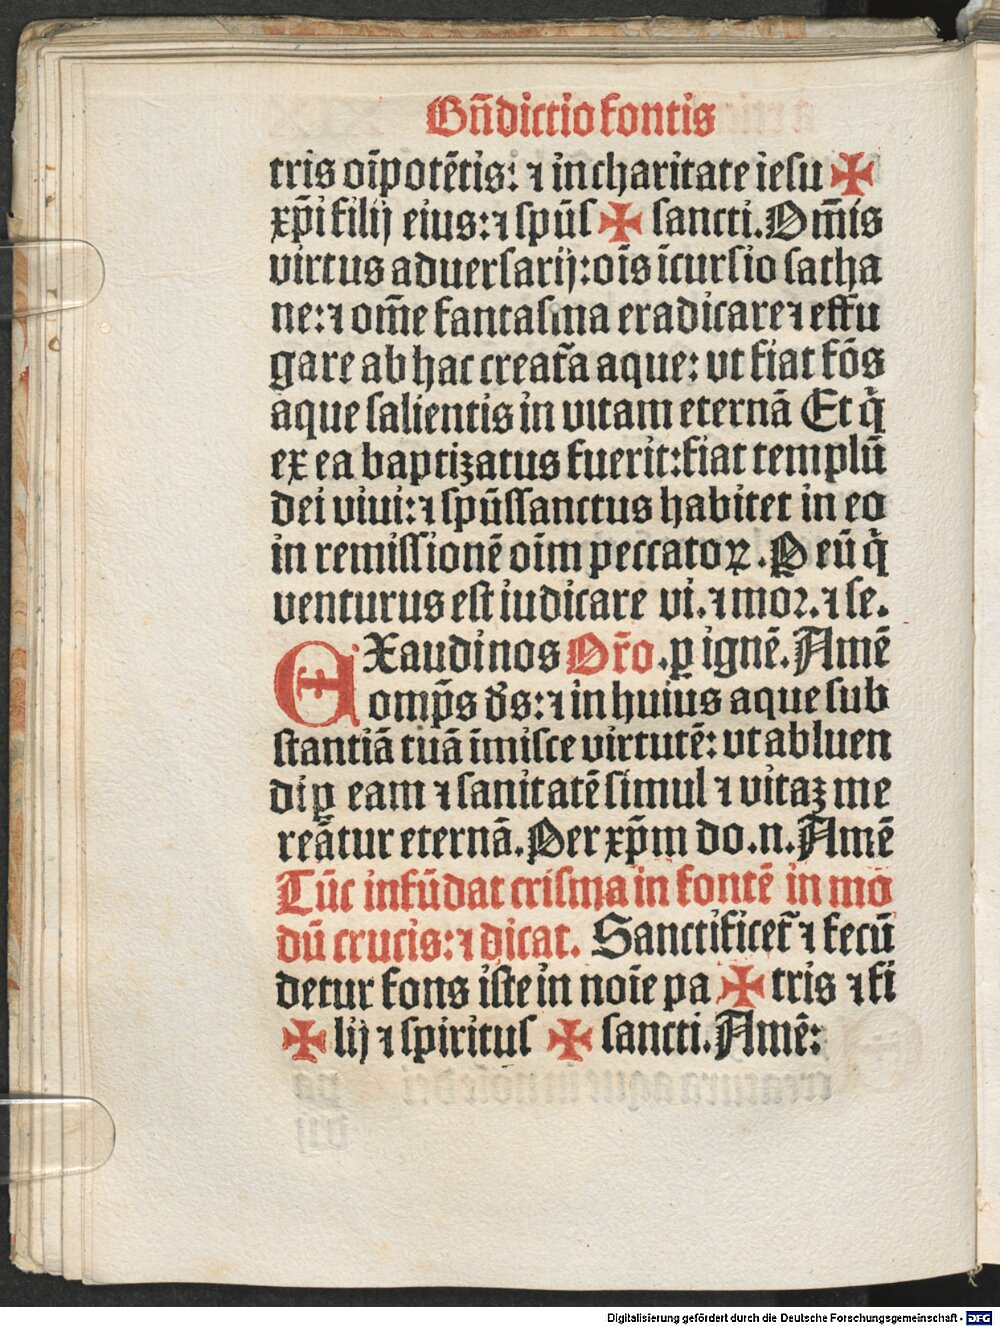 Bn̄dictio fontis
tris oīpotētis: ⁊ in charitate iesu ✠
xp̄i filij eius: ⁊ spūs ✠ sancti. Om̄is
virtus aduersarij: oīs īcursio satha
ne: ⁊ om̄e fantasma eradicare ⁊ effu
gare ab hac creat̄a aque: vt fiat fōs
aque salientis in vitam eternā Et q̇
ex ea baptizatus fuerit: fiat templū
dei viui: ⁊ spūssanctus habitet in eo
in remissionē oīm peccatoꝝ. Per eū q̇
venturus est iudicare vi. ⁊ moꝛ. ⁊ se.
EXaudi nos Or̄o. ꝑ ignē. Amē
omp̄s ds̄: ⁊ in huius aque sub
stantiā tuā īmisce virtutē: vt abluen
di ꝑ eam ⁊ sanitatē simul ⁊ vitaꝫ me
reātur eternā. Per xp̄m do. n. Amē
Tūc infūdat crisma in fontē in mo
dū crucis: ⁊ dicat. Sanctificet̄ ⁊ fecū
detur fons iste in noīe pa ✠ tris ⁊ fi
✠ lij ⁊ spiritus ✠ sancti. Amē:
Digitalisierung gefördert durch die Deutsche Forschungsgemeinschaft - DFG